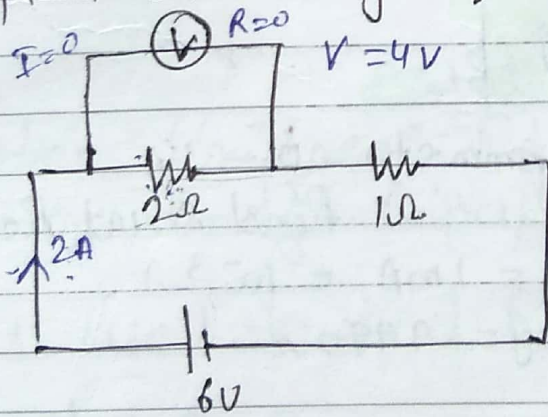 I=0 V R=0 V=4V
2Ω 1Ω
2A
6V